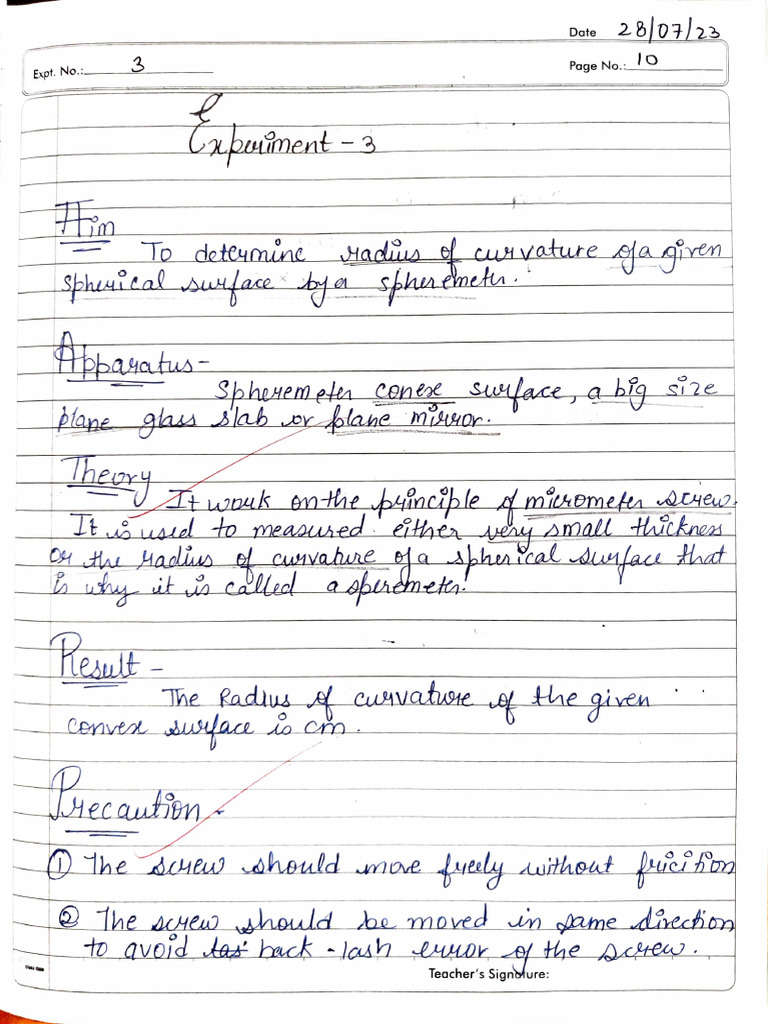 Date 28/07/23
Expt. No.: 3
Page No.: 10
Experiment - 3
Aim
To determine radius of curvature of a given
spherical surface by a spheremeter.
Apparatus-
Spheremeter conex surface, a big size
plane glass slab or plane mirror.
Theory
It work on the principle of micrometer screw.
It is used to measured either very small thickness
or the radius of curvature of a spherical surface that
is why it is called a speremeter.
Result -
The Radius of curvature of the given
convex surface is cm.
Precaution -
① The screw should move freely without fricition
② The screw should be moved in same direction
to avoid back-lash error of the screw.
Teacher's Signature: